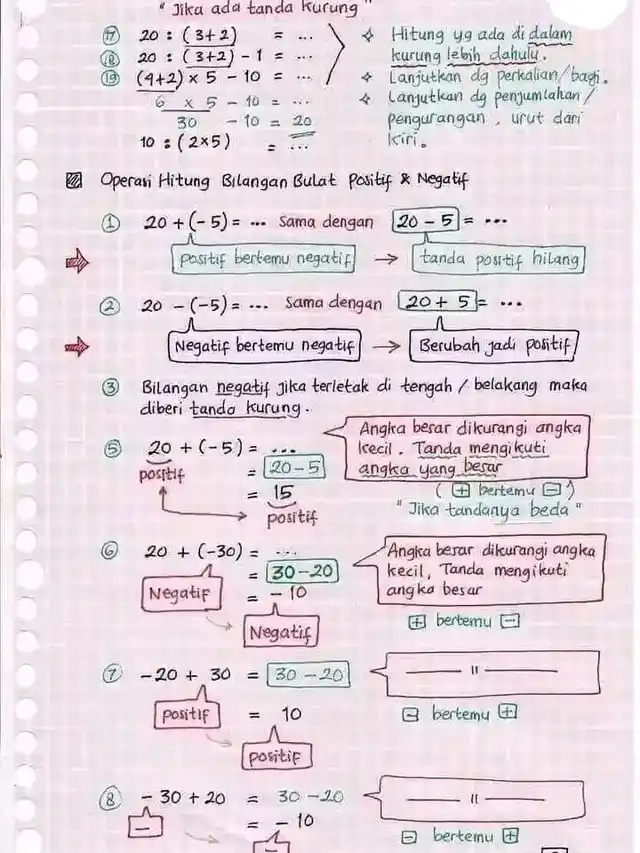 " Jika ada tanda kurung "
⑰ 20 : (3+2) = ...
⑱ 20 : (3+2) - 1 = ...
⑲ (4+2) x 5 - 10 = ...
6 x 5 - 10 = ...
30 - 10 = 20
10 : (2x5) = ...
✧ Hitung yg ada di dalam
kurung lebih dahulu.
✧ Lanjutkan dg perkalian/bagi.
✧ Lanjutkan dg penjumlahan/
pengurangan, urut dari
kiri.
Operasi Hitung Bilangan Bulat Positif & Negatif
① 20 + (-5) = ... Sama dengan 20 - 5 = ...
positif bertemu negatif → tanda positif hilang
② 20 - (-5) = ... Sama dengan 20 + 5 = ...
Negatif bertemu negatif → Berubah jadi positif
③ Bilangan negatif jika terletak di tengah / belakang maka
diberi tanda kurung.
⑤ 20 + (-5) = ...
positif = 20-5
= 15
positif
Angka besar dikurangi angka
kecil. Tanda mengikuti
angka yang besar
( + bertemu - )
" Jika tandanya beda "
⑥ 20 + (-30) = ...
= 30-20
Negatif = - 10
Negatif
Angka besar dikurangi angka
kecil, Tanda mengikuti
angka besar
+ bertemu -
⑦ -20 + 30 = 30 - 20
positif = 10
positif
—— 11 ——
- bertemu +
⑧ - 30 + 20 = 30 - 20
- = - 10
-
—— 11 ——
- bertemu +